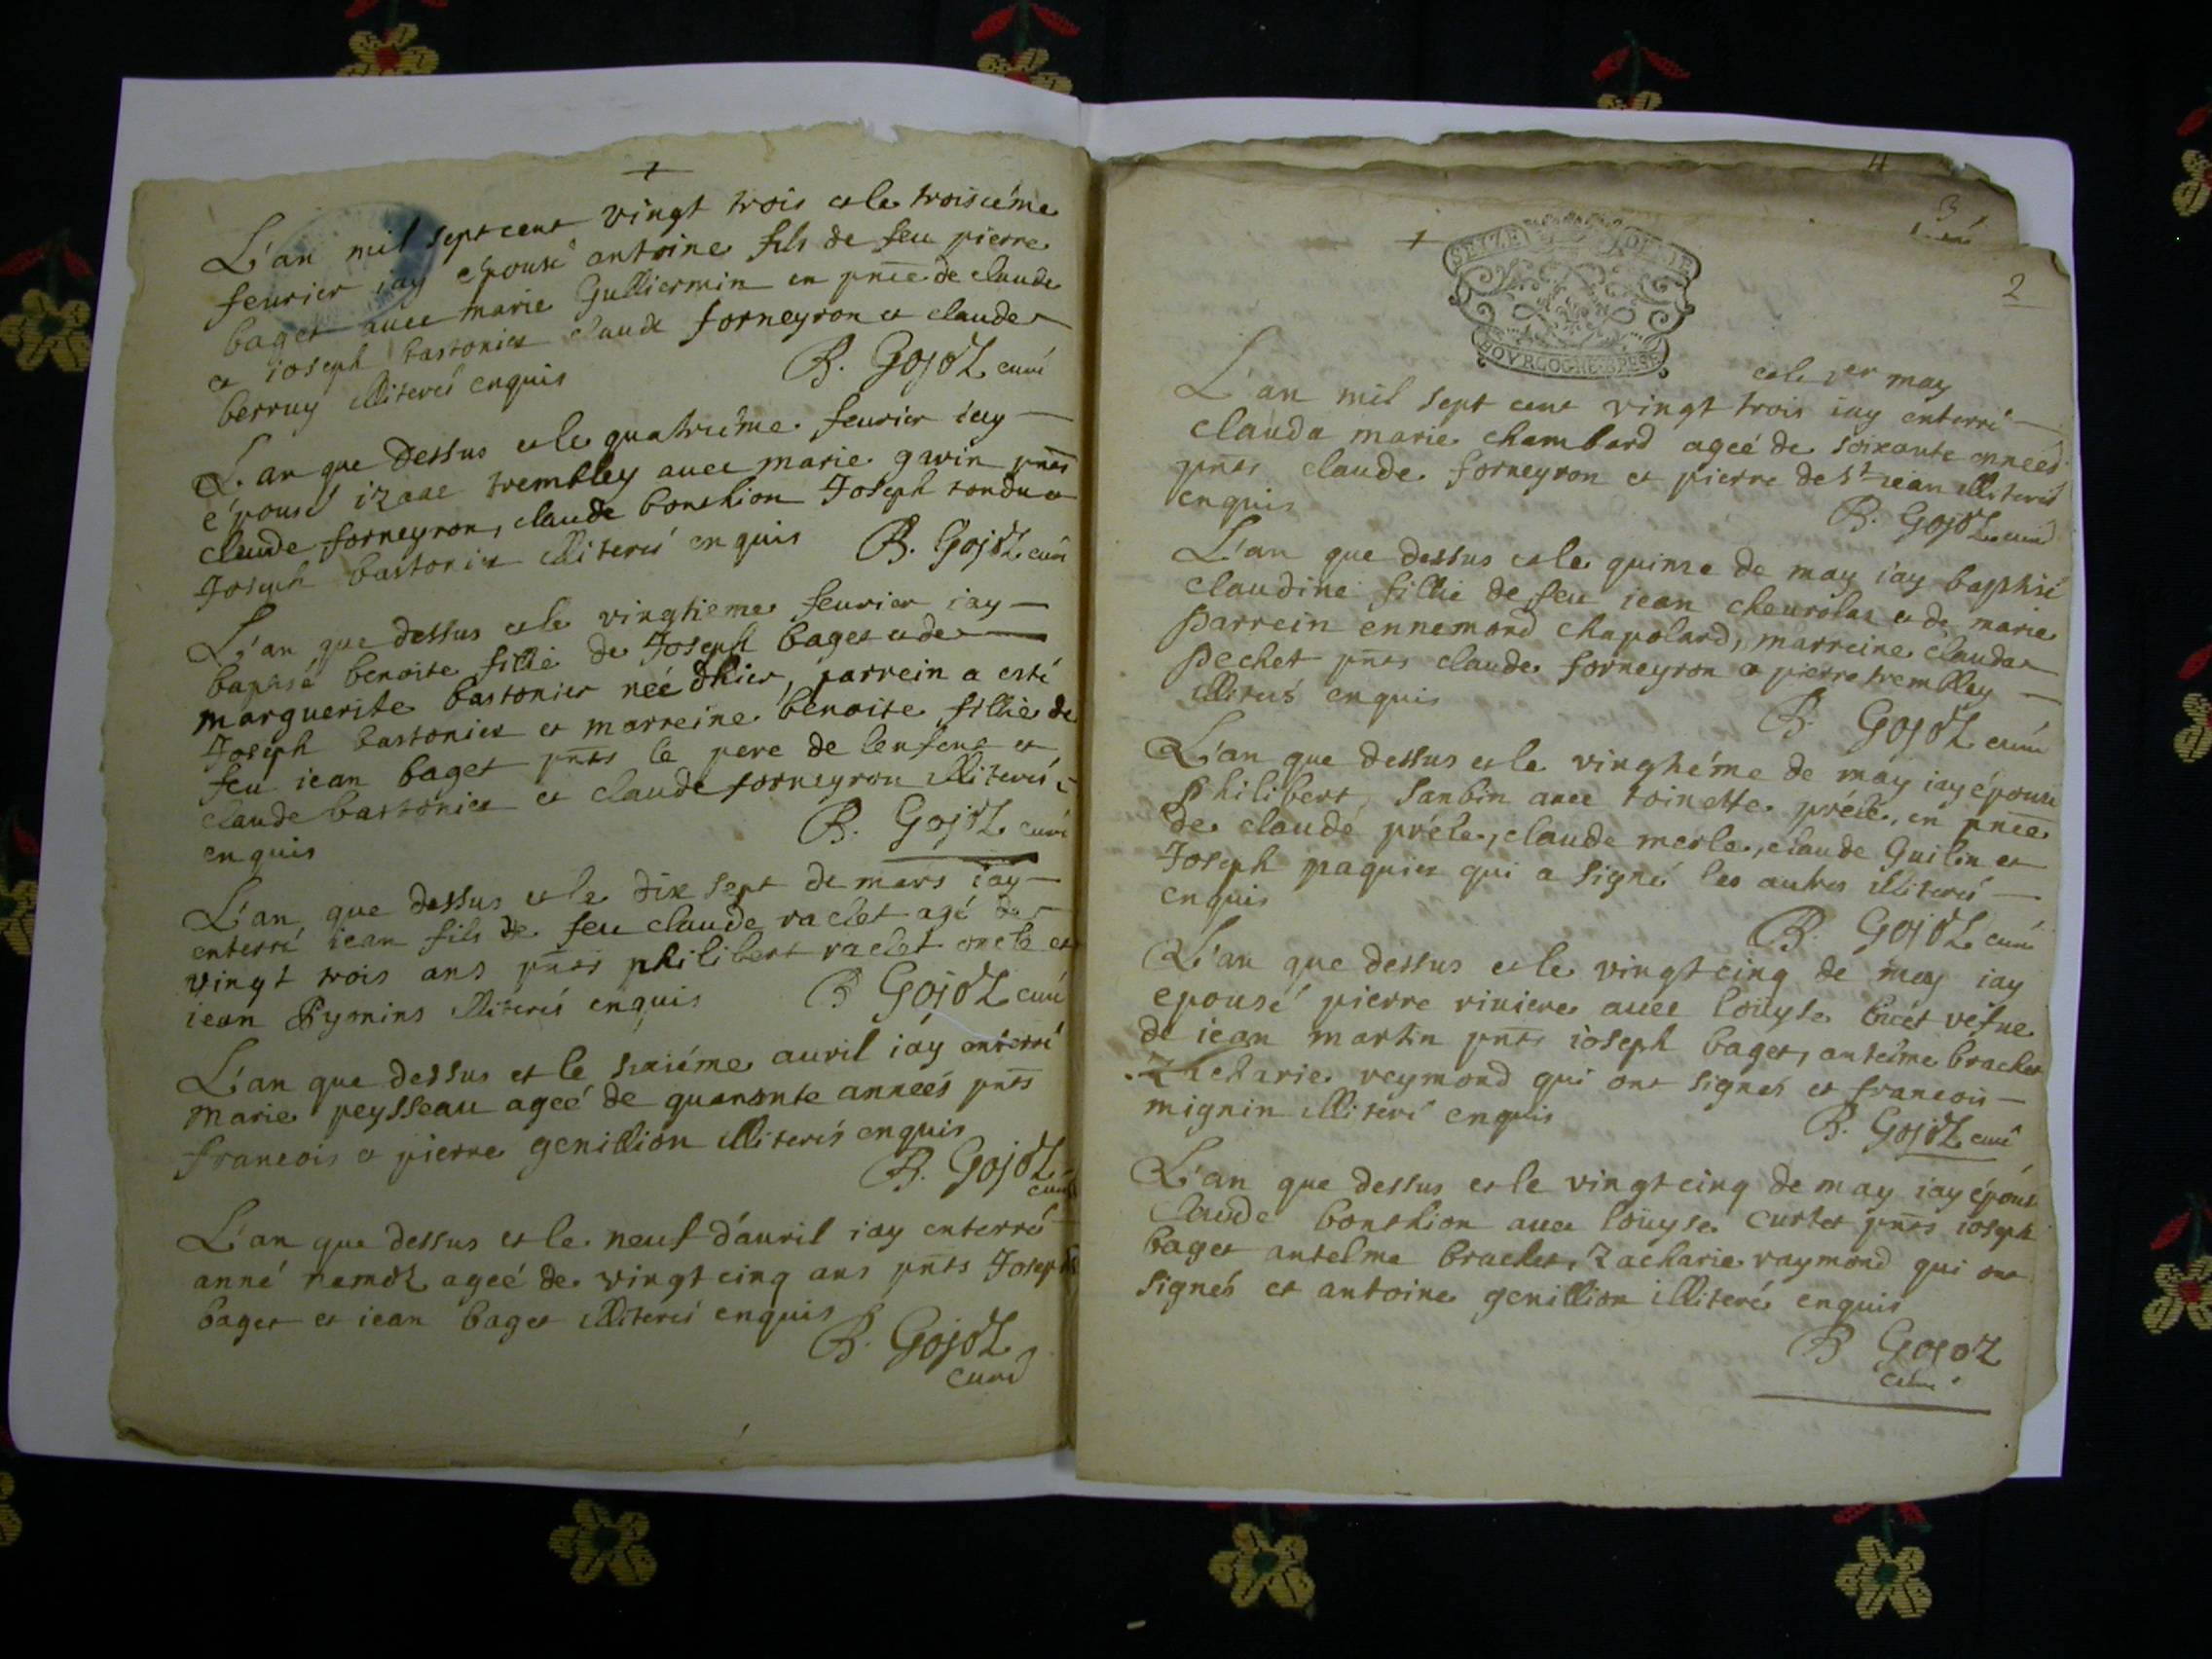 L'an mil sept cent vingt trois et le troisiéme
feurier iay épousé antoine fils de feu pierre
baget auec marie Gulliermin en pnce de claude
et ioseph bastonier claude forneyron et claude
berruy illiterés enquis B. Gojoz curé
L'an que dessus et le quatriéme feurier iay
épousé izaac trembley auec marie gavin pnts
claude forneyron, claude bonthion Joseph tondu et
Joseph bastonier illiterés enquis B. Gojoz curé
L'an que dessus et le vingtieme feurier iay
baptisé benoite fillie de Joseph baget et de
marguerite bastonier néé dhier, parrein a esté
Joseph bastonier et marreine benoite fillie de
feu iean baget pnts le pere de lenfant et
claude bastonier et claude forneyron illiterés
enquis B. Gojoz curé
L'an que dessus et le dix sept de mars iay
enterré iean fils de feu claude raclet agé de
vingt trois ans pnts philibert raclet oncle et
iean Pymins illiterés enquis B Gojoz curé
L'an que dessus et le sixiéme auril iay enterré
marie peysseau ageé de quarante anneés pnts
francois et pierre genillion illiterés enquis
B. Gojoz
curé
L'an que dessus et le neuf d'auril iay enterré
anné namoz ageé de vingt cinq ans pnts Joseph
baget et iean baget illiterés enquis
B. Gojoz
curé
3
2
SEIZE
BOVRGOGNE BRESSE
et le 1er may
L'an mil sept cent vingt trois iay enterré
clauda marie chambard ageé de soixante anneés
pnts claude forneyron et pierre de st iean illiterés
enquis B. Gojoz curé
L'an que dessus et le quinze de may iay baptisé
claudine fillie de feu iean cheurolat et de marie
parrein ennemond chapolard, marreine clauda
pechet pnts claude forneyron et pierre trembley
illiterés enquis
B. Gojoz curé
L'an que dessus et le vingtiéme de may iay épousé
philibert sanbin auec toinette préle, en pnce
de claude préle, claude merle, claude Guilin et
Joseph paquier qui a signé les autres illiterés
enquis
B. Gojoz curé
L'an que dessus et le vingt cinq de may iay
epousé pierre riuiere auec loüyse bicet vefue
de iean martin pnts ioseph baget, antelme brachet
Zacharie reymond qui ont signés et francois
mignin illiteré enquis B. Gojoz curé
L'an que dessus et le vingt cinq de may iay épousé
claude bonthion auec loüyse curtet pnts ioseph
baget antelme brachet, Zacharie raymond qui ont
signés et antoine genillion illiteré enquis
B Gojoz
curé